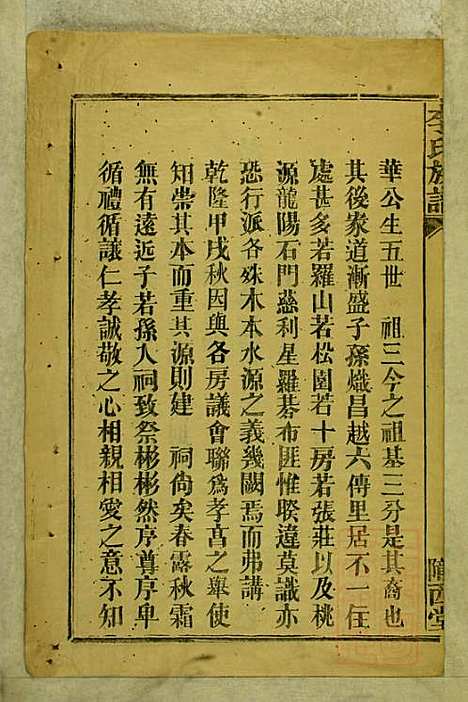 華公生五世 祖三今之祖基三分是其裔也
其後家道漸盛子孫熾昌越六傳里居不一住
處甚多若羅山若松園若十房若張莊以及桃
源龍陽石門慈利星羅碁布匪惟睽違莫識亦
恐行派各殊木本水源之義幾闕焉而弗講
乾隆甲戌秋因與各房議會聯為孝享之舉使
知崇其本而重其源則建 祠尙矣春露秋霜
無有遠近子若孫入祠致祭彬彬然序尊序卑
循禮循讓仁孝誠敬之心相親相愛之意不知
李氏族譜
隴西堂